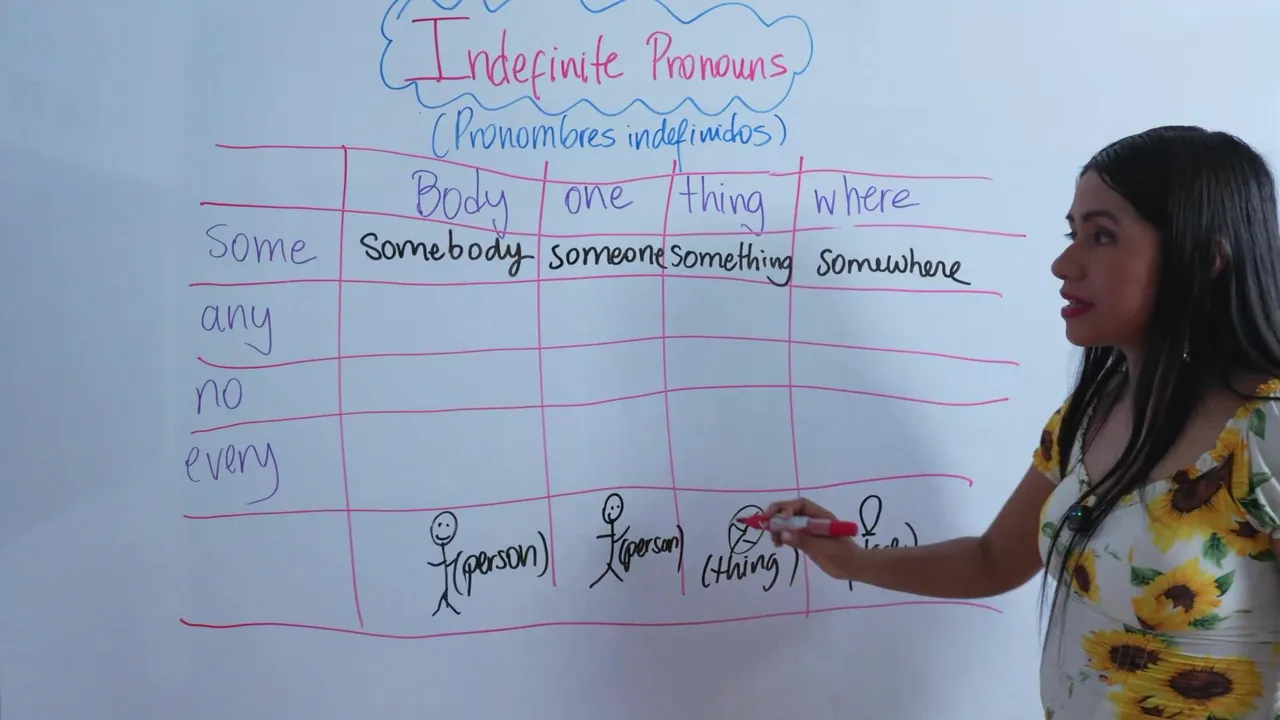 Indefinite Pronouns
(Pronombres indefinidos)
Body one thing where
some somebody someone something somewhere
any
no
every
(person) (person) (thing)